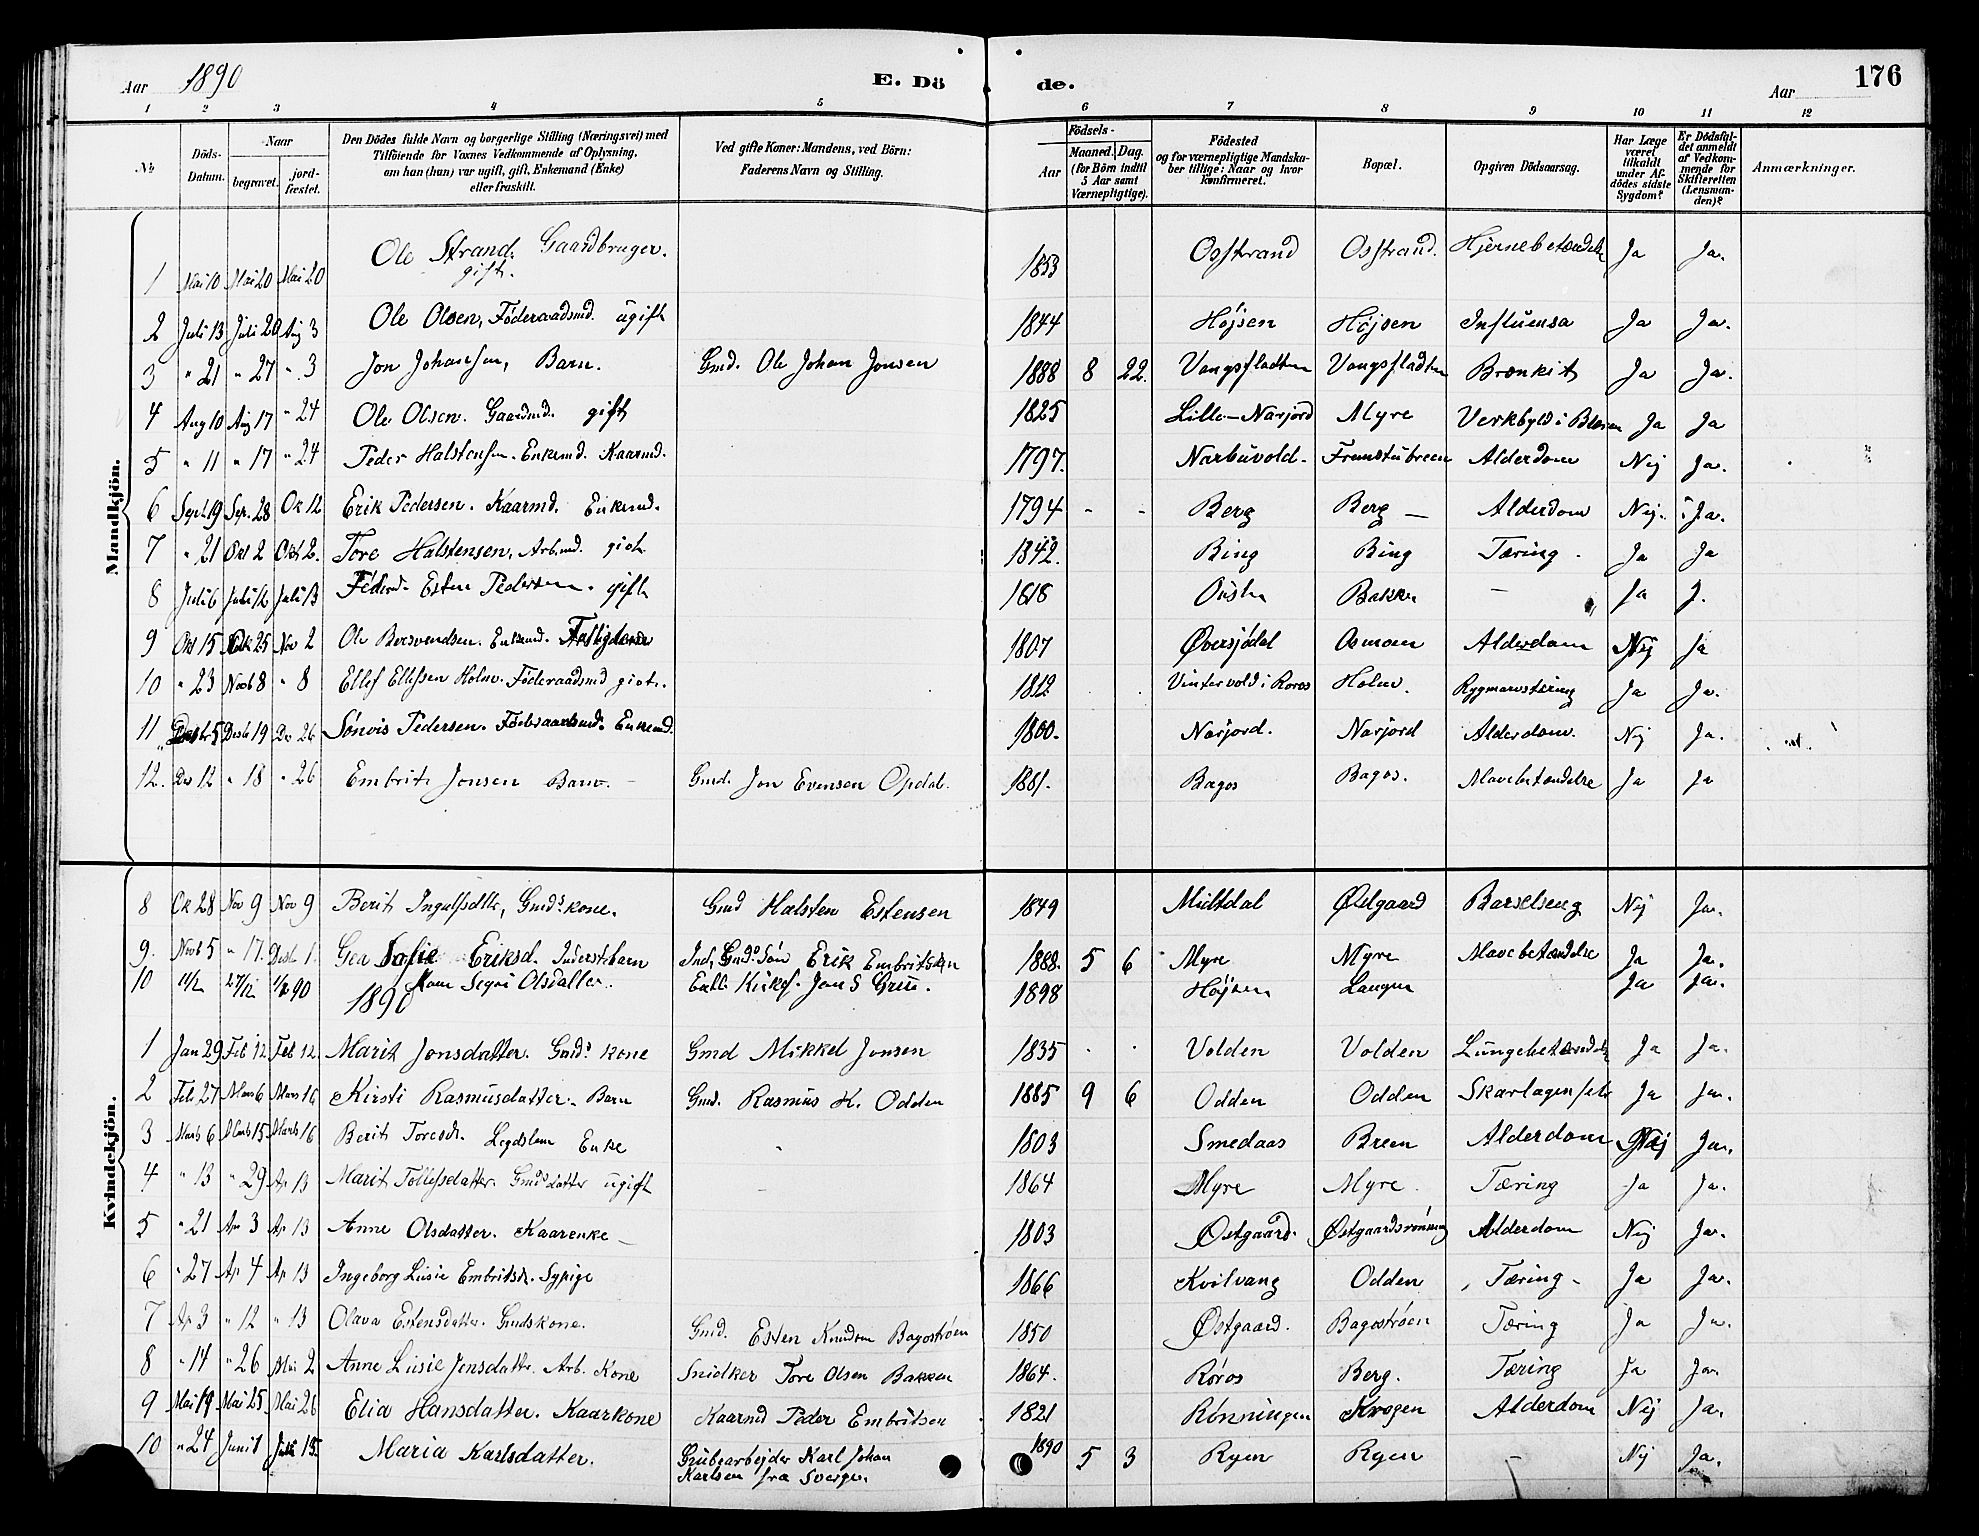 Aar 1890
E. Dö
de.
Aar
176
1 2 3 4 5 6 7 8 9 10 11 12
No
Döds-Datum.
Naar
begravet.
jord-fæstet.
Den Dödes fulde Navn og borgerlige Stilling (Næringsvei) med
Tilföiende for Voxnes Vedkommende af Oplysning,
om han (hun) var ugift, gift, Enkemand (Enke)
eller fraskilt.
Ved gifte Koner: Mandens, ved Börn:
Faderens Navn og Stilling.
Födsels-
Aar
Maaned. Dag.
(for Börn indtil
5 Aar samt
Værnepligtige).
Födested
og for værnepligtige Mandska-
ber tillige: Naar og hvor
konfirmeret.
Bopæl.
Opgiven Dödsaarsag.
Har Læge
været
tilkaldt
under Af-
dödes sidste
Sygdom?
Er Dödsfal-
det anmeldt
af Vedkom-
mende for
Skifteretten
(Lensman-
den)?
Anmærkninger.
Mandkjön.
1 Mai 10 Mai 20 Mai 20 Ole Strand. Gaardbruger. gift. 1853 Osstrand Osstrand. Hjernebetændelse Ja Ja.
2 Juli 13 Juli 20 Aug 3 Ole Olsen, Föderaadsmd. ugift 1844 Højsen Højsen Influensa Ja Ja.
3 " 21 " 27 " 3 Jon Johansen, Barn. Gmd. Ole Johan Jonsen 1888 8 22. Vangsfladten Vangsfladten Bronkit Ja Ja.
4 Aug 10 Aug 17 " 24 Ole Olsen. Gaardmd. gift 1825 Lille-Narjord Myre Verkbyld i Ja Ja
5 " 11 " 17 " 24 Peder Halstensen. Enkemd. Kaarmd. 1797. Narbuvold. Alderdom Nej Ja.
6 Sept 19 Sep. 28 Ok 12 Erik Pedersen. Kaarmd. Enkemd. 1794 - - Berg Berg — Alderdom Nej. Ja.
7 " 21 Okt 2 Okt 2. Tore Halstensen, Arb.md. gift 1842. Bing Bing Tæring. Ja Ja
8 Juli 6 Juli 12 Juli 13 Esten Pedersen. gift 1818 Bakken — Ja J.
9 Okt 15 Okt 25 Nov 2 Ole Bersvendsen. Enkemd. 1807 Øversjødal Osmoen Alderdom Nej Ja
10 " 23 Novb 8 " 8 Ellef Ellefsen Holm. Föderaadsmd gift. 1812 Vintervold i Røros Holm. Rygmarvstæring Ja Ja.
11 5 Desb 19 Des 26 Sønvis Pedersen. Föderaadsmd. Enkemd. 1800. Narjord. Narjord Alderdom. Nej Ja.
12. Des 12 " 18 " 26 Embrit Jonsen Barn. — Gmd. Jon Evensen Opdal. 1881. Bagos Bagos. Mavebetændelse Ja Ja
Kvindekjön.
8 Ok 28 Nov 9 Nov 9 Berit Ingulfsdtr, Gmds kone. Gmd Halsten Estensen 1849 Midtdal Østgaard Barselseng Nej Ja.
9. Novb 5 " 17. Desb 1. Gea Sofie Eriksd. Inderstbarn Ind, Gmds Søn Erik Embritsen 1888. 5 6 Myre Myre Mavebetændelse Ja Ja.
10 11/12 27/12 Olsdatter. Jon S 1898 Højsen Langen Ja Ja.
1890
1 Jan 29 Feb 12 Feb 12. Marit Jonsdatter. Gmds kone Gmd Mikkel Jonsen 1835 Volden Volden Lungebetændelse Ja Ja.
2 Feb 27 Marts 6 Marts 16 Kirsti Rasmusdatter. Barn Gmd. Rasmus H. Odden 1885 9 6 Odden Odden Skarlagensfeb Ja Ja.
3 Marts 6 Marts 15 Marts 16 Berit Toresdr. Legdslem Enke 1803 Smedaas Breen Alderdom Nej Ja.
4 " 13 " 29 Ap 13 Marit Tollefsdatter. Gmdsdatter ugift 1864 Myre Myre. Tæring Ja Ja.
5 " 21 Ap 3 Ap 13 Anne Olsdatter. Kaarenke — 1803 Østgaard. Østgaardsrønning Alderdom Nej Ja.
6 " 27 Ap 4 Ap 13 Ingeborg Lusie Embritsdr. Sypige 1866 Kvilvang Odden Tæring - Ja Ja.
7 Ap 3 " 12 " 13 Olava Estensdatter. Gmdskone. Gmd. Esten Knudsen Bagostrøen 1850 Østgaard. Bagostrøen Tæring Ja Ja.
8 " 14 " 26 Mai 2 Anne Lusie Jensdatter. Arb. Kone Snidker Tore Olsen Bakken 1864. Røros Berg. Tæring Ja Ja.
9 Mai 19 Mai 25 Mai 26 Elia Hansdatter. Kaarkone Kaarmd Peder Embritsen 1821 Rønningen Krogen Alderdom Nej Ja.
10 " 24 Juni 1 Juli 15 Maria Karlsdatter. Grubearbejder Karl Johan Karlsen fra Sverge. 1890 5 3 Ryen Ryen — Nej Ja.